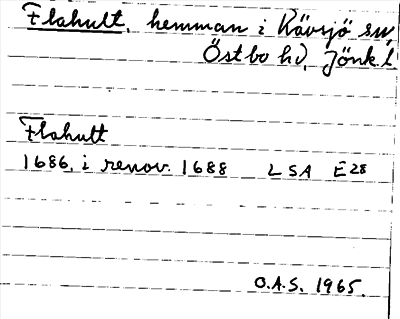 Flahult, hemman i Kävsjö sn,
Östbo hd, Jönk. l
Flahult
1686, i renov. 1688 LSA E28
O.A.S. 1965.